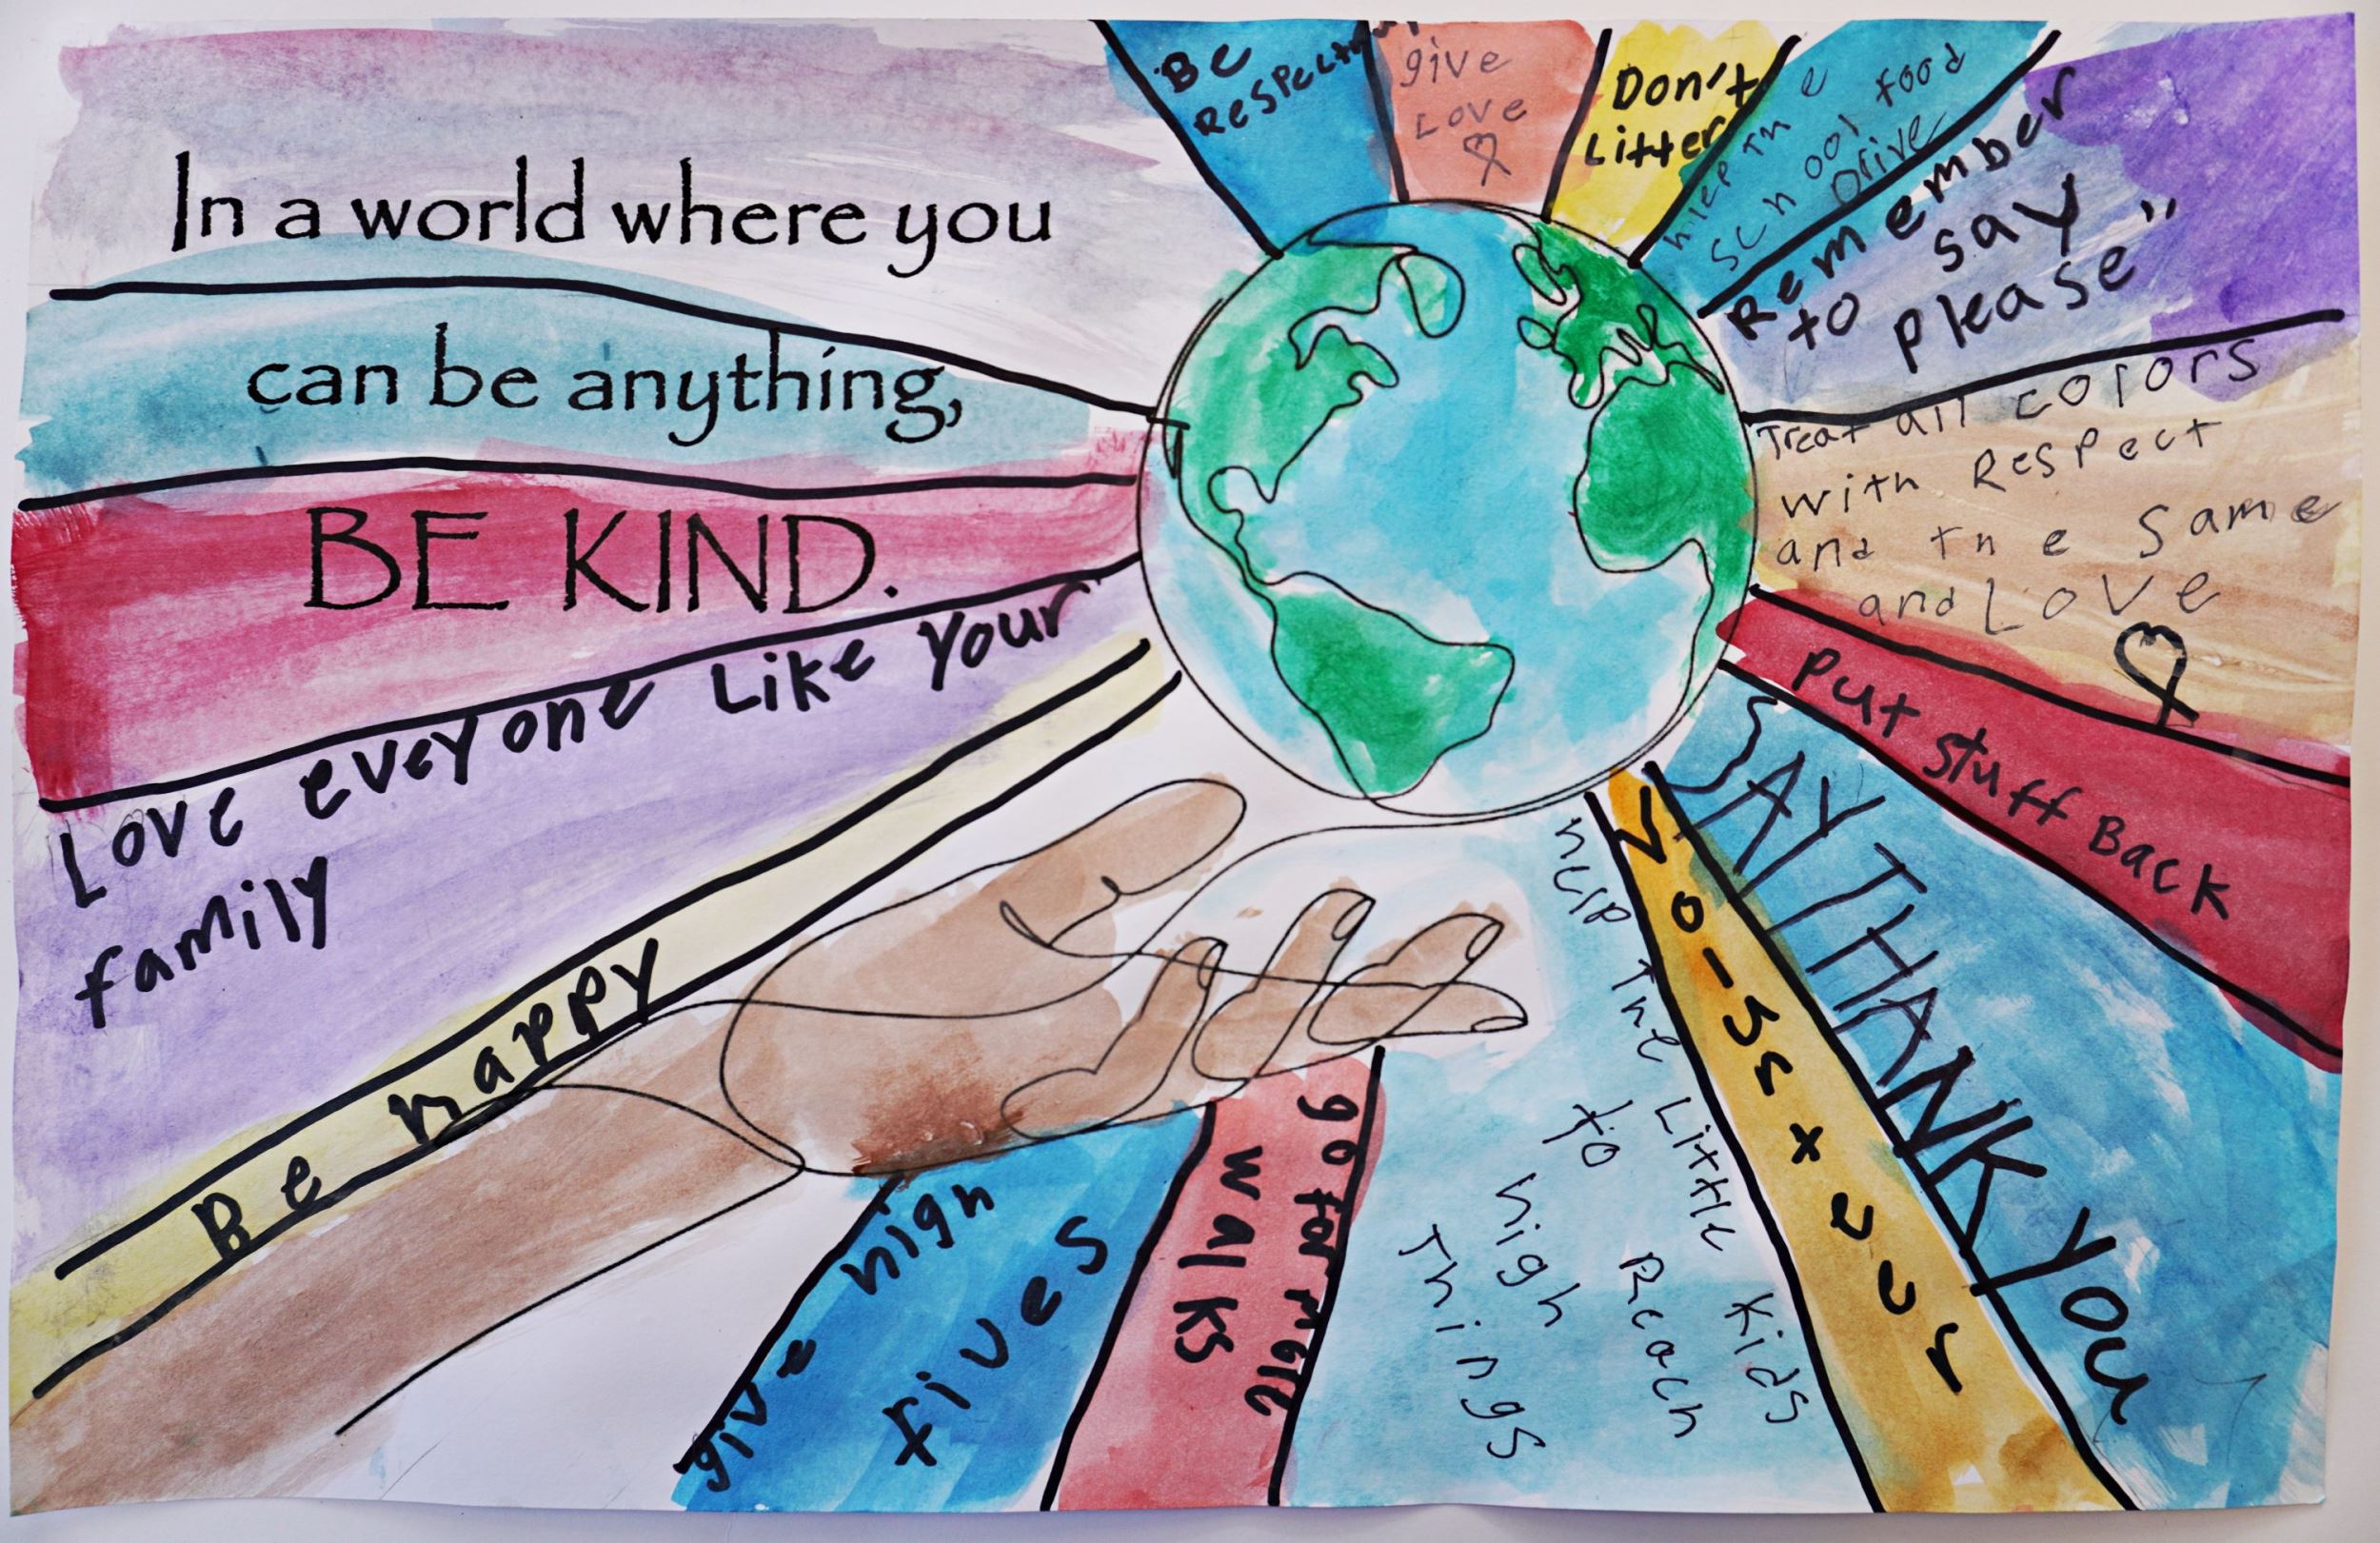 In a world where you
can be anything,
BE KIND.
Love eveyone Like your
family
Be happy
Be
Respectful
give
Love
Don't
Litter
hlep the
school food
Drive
Remember
to say
please"
Treat all colors
with Respect
and the same
and Love
Put stuff Back
SAY THANK YOU
help the Little Kids
to Reach
high
Things
go for more
walks
give high
fives